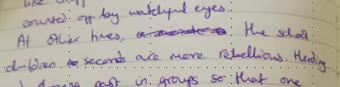 counted off by watchful eyes.
At other times, the school
children seconds are more rebellious. Herding
past in groups so that one